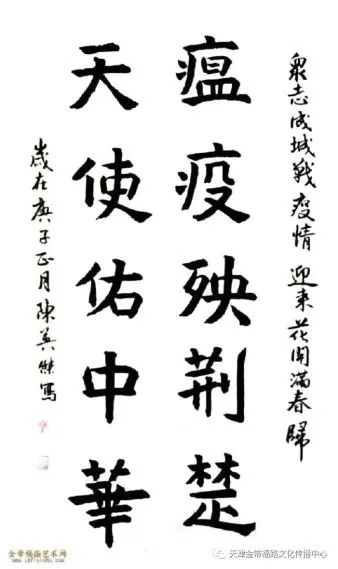 眾志成城戰疫情 迎来花開滿春歸
瘟疫殃荆楚
天使佑中華
歲在庚子正月陳英傑寫
金帝福路艺术网
天津金帝福路文化传播中心